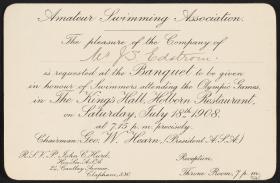 Amateur Swimming Association.
The pleasure of the Company of
Mr J.S. Edström
is requested at the Banquet to be given
in honour of Swimmers attending the Olympic Games,
in The King's Hall, Holborn Restaurant,
on Saturday, July 18th 1908,
at 7.15 p.m. precisely.
Chairman Geo. W. Hearn, (President A.S.A.)
R.S.V.P. John C. Hurd,
Hon. Sec. A.S.A.
Reception,
Throne Room, 7 p.m.